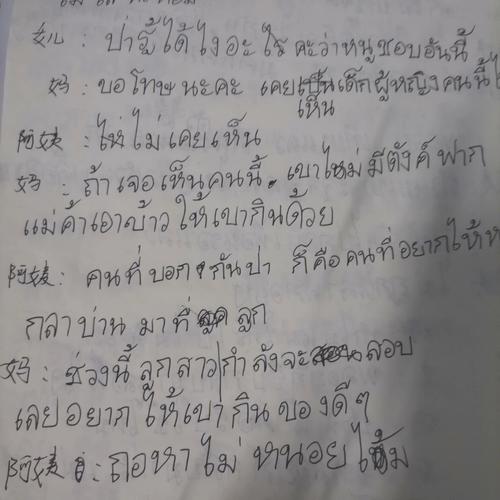 女儿 : ป่ารู้ได้ไงอะไร คะว่าหนูชอบอันนี้
妈 : ขอโทษนะคะ เคยเห็นเด็กผู้หญิงคนนี้
阿姨 : ไม่เคยเห็น
妈 : ถ้าเจอเห็นคนนี้ เขาไหม่มีตังค์ ฝาก
แม่ค้าเอาข้าวให้เขากินด้วย
阿姨 : คนที่บอก กันป่า ก็คือคนที่อยากให้
กลาบ่าน มาที่ ลูก
妈 : ช่วงนี้ลูกสาวกำลังจะสอบ
เลยอยากให้เขากินของดีๆ
阿姨 : ถอหาไม่ หนอย